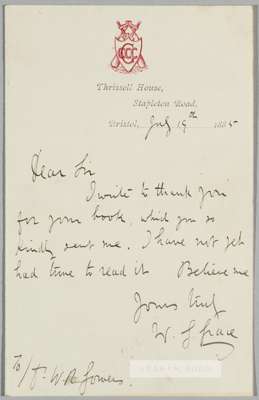 Thrissell House,
Stapleton Road,
Bristol, July 19th 1885
Dear Sir
I write to thank you
for your book, which you so
kindly sent me. I have not yet
had time to read it Believe me
Yours truly
W. G. Grace
To W. R. Gowers.